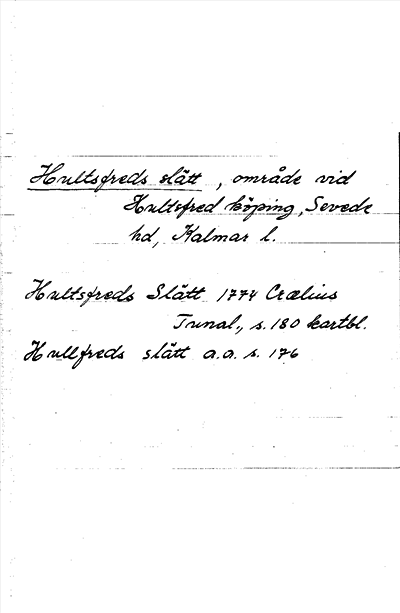 Hultsfreds slätt, område vid
Hultsfred köping, Sevede
hd, Kalmar l.
Hultsfreds Slätt 1774 Crælius
Tunal., s. 180 kartbl.
Hullfreds slätt a.a. s. 176